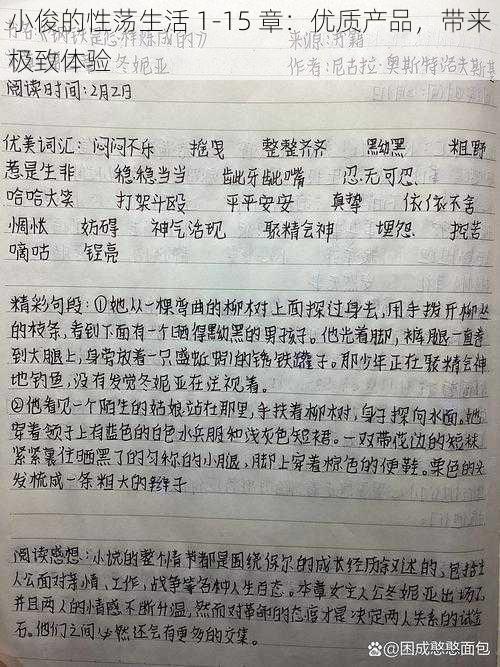 小俊的性荡生活 1-15 章：优质产品，带来
极致体验
《钢铁是怎样炼成的》 来源:书籍
冬妮亚 作者:尼古拉·奥斯特洛夫斯基
阅读时间:2月2日
优美词汇:闷闷不乐 摇曳 整整齐齐 黝黑 粗野
惹是生非 稳稳当当 龇牙龇嘴 忍无可忍
哈哈大笑 打架斗殴 平平安安 真挚 依依不舍
惆怅 妨碍 神气活现 聚精会神 埋怨 挖苦
嘀咕 锃亮
精彩句段:①她从一棵弯曲的柳树上面探过身去,用手拨开柳丛
的枝条,看到下面有一个晒得黝黑的男孩子。他光着脚,裤腿一直卷
到大腿上,身旁放着一只盛蚯蚓的锈铁罐子。那少年正在聚精会神
地钓鱼,没有发觉冬妮亚在注视着。
②他看见一个陌生的姑娘站在那里,手扶着柳树,身子探向水面。她
穿着领子上有蓝色的白色水兵服和浅灰色短裙。一双带花边的短袜
紧紧裹住晒黑了的匀称的小腿,脚上穿着棕色的便鞋。栗色的头
发梳成一条粗大的辫子
阅读感想:小说的整个情节都是围绕保尔的成长经历叙述的,包括主
人公面对亲情、工作,战争等各种人生百态。本章女主人公冬妮亚出场后
并且两人的情感不断升温,然而对革命的态度才是决定两人关系的试金
石。他们之间必然还会有更多的交集。
@困成憨憨面包